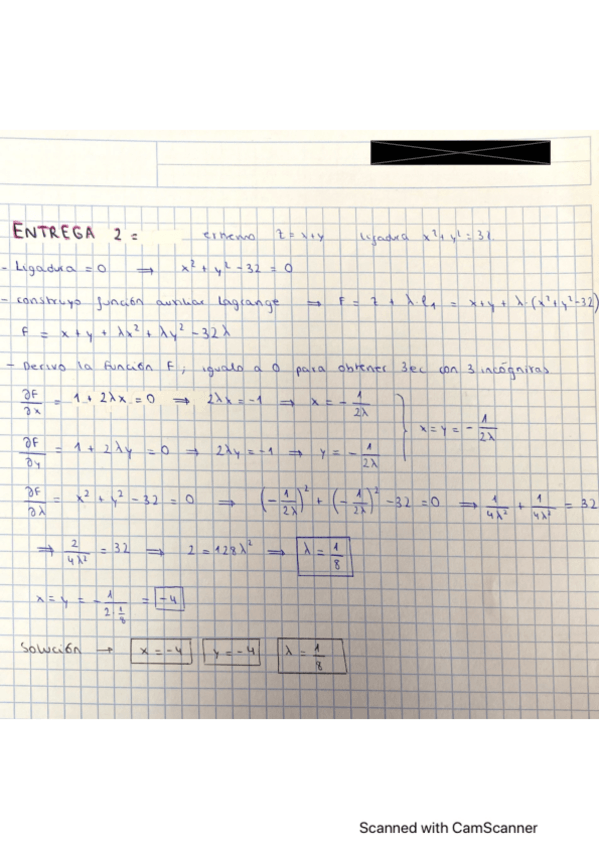 ENTREGA 2 = extremo z = x+y ligadura x² + y² = 32
- Ligadura = 0 → x² + y² - 32 = 0
- construyo función auxiliar Lagrange ⇒ F = z + λ·l₁ = x+y + λ·(x²+y²-32)
F = x + y + λx² + λy² - 32λ
- Derivo la función F, igualo a 0 para obtener 3ec con 3 incógnitas
∂F/∂x = 1 + 2λx = 0 ⇒ 2λx = -1 ⇒ x = - 1/2λ
x = y = - 1/2λ
∂F/∂y = 1 + 2λy = 0 → 2λy = -1 → y = - 1/2λ
∂F/∂λ = x² + y² - 32 = 0 ⇒ (- 1/2λ)² + (- 1/2λ)² - 32 = 0 ⇒ 1/4λ² + 1/4λ² = 32
⇒ 2/4λ² = 32 ⇒ 2 = 128λ² ⇒ λ = 1/8
x = y = - 1/2·1/8 = -4
Solución → x = -4 y = -4 λ = 1/8
Scanned with CamScanner